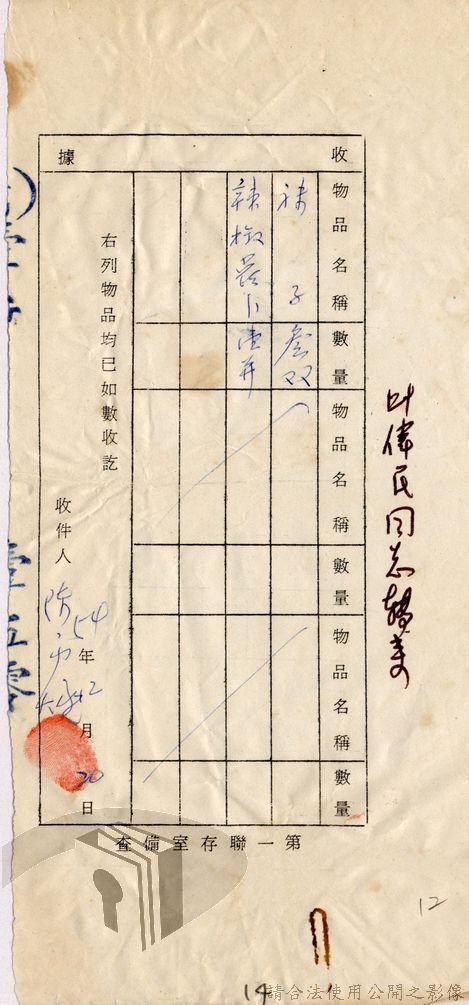 叶偉民同志轉来
收據
物品名稱 數量 物品名稱 數量 物品名稱 數量
袜子 叁双
辣椒蘿卜 壹瓶
右列物品均已如數收訖
收件人
54年12月20日
第一聯存室備查
12
14
請合法使用公開之影像